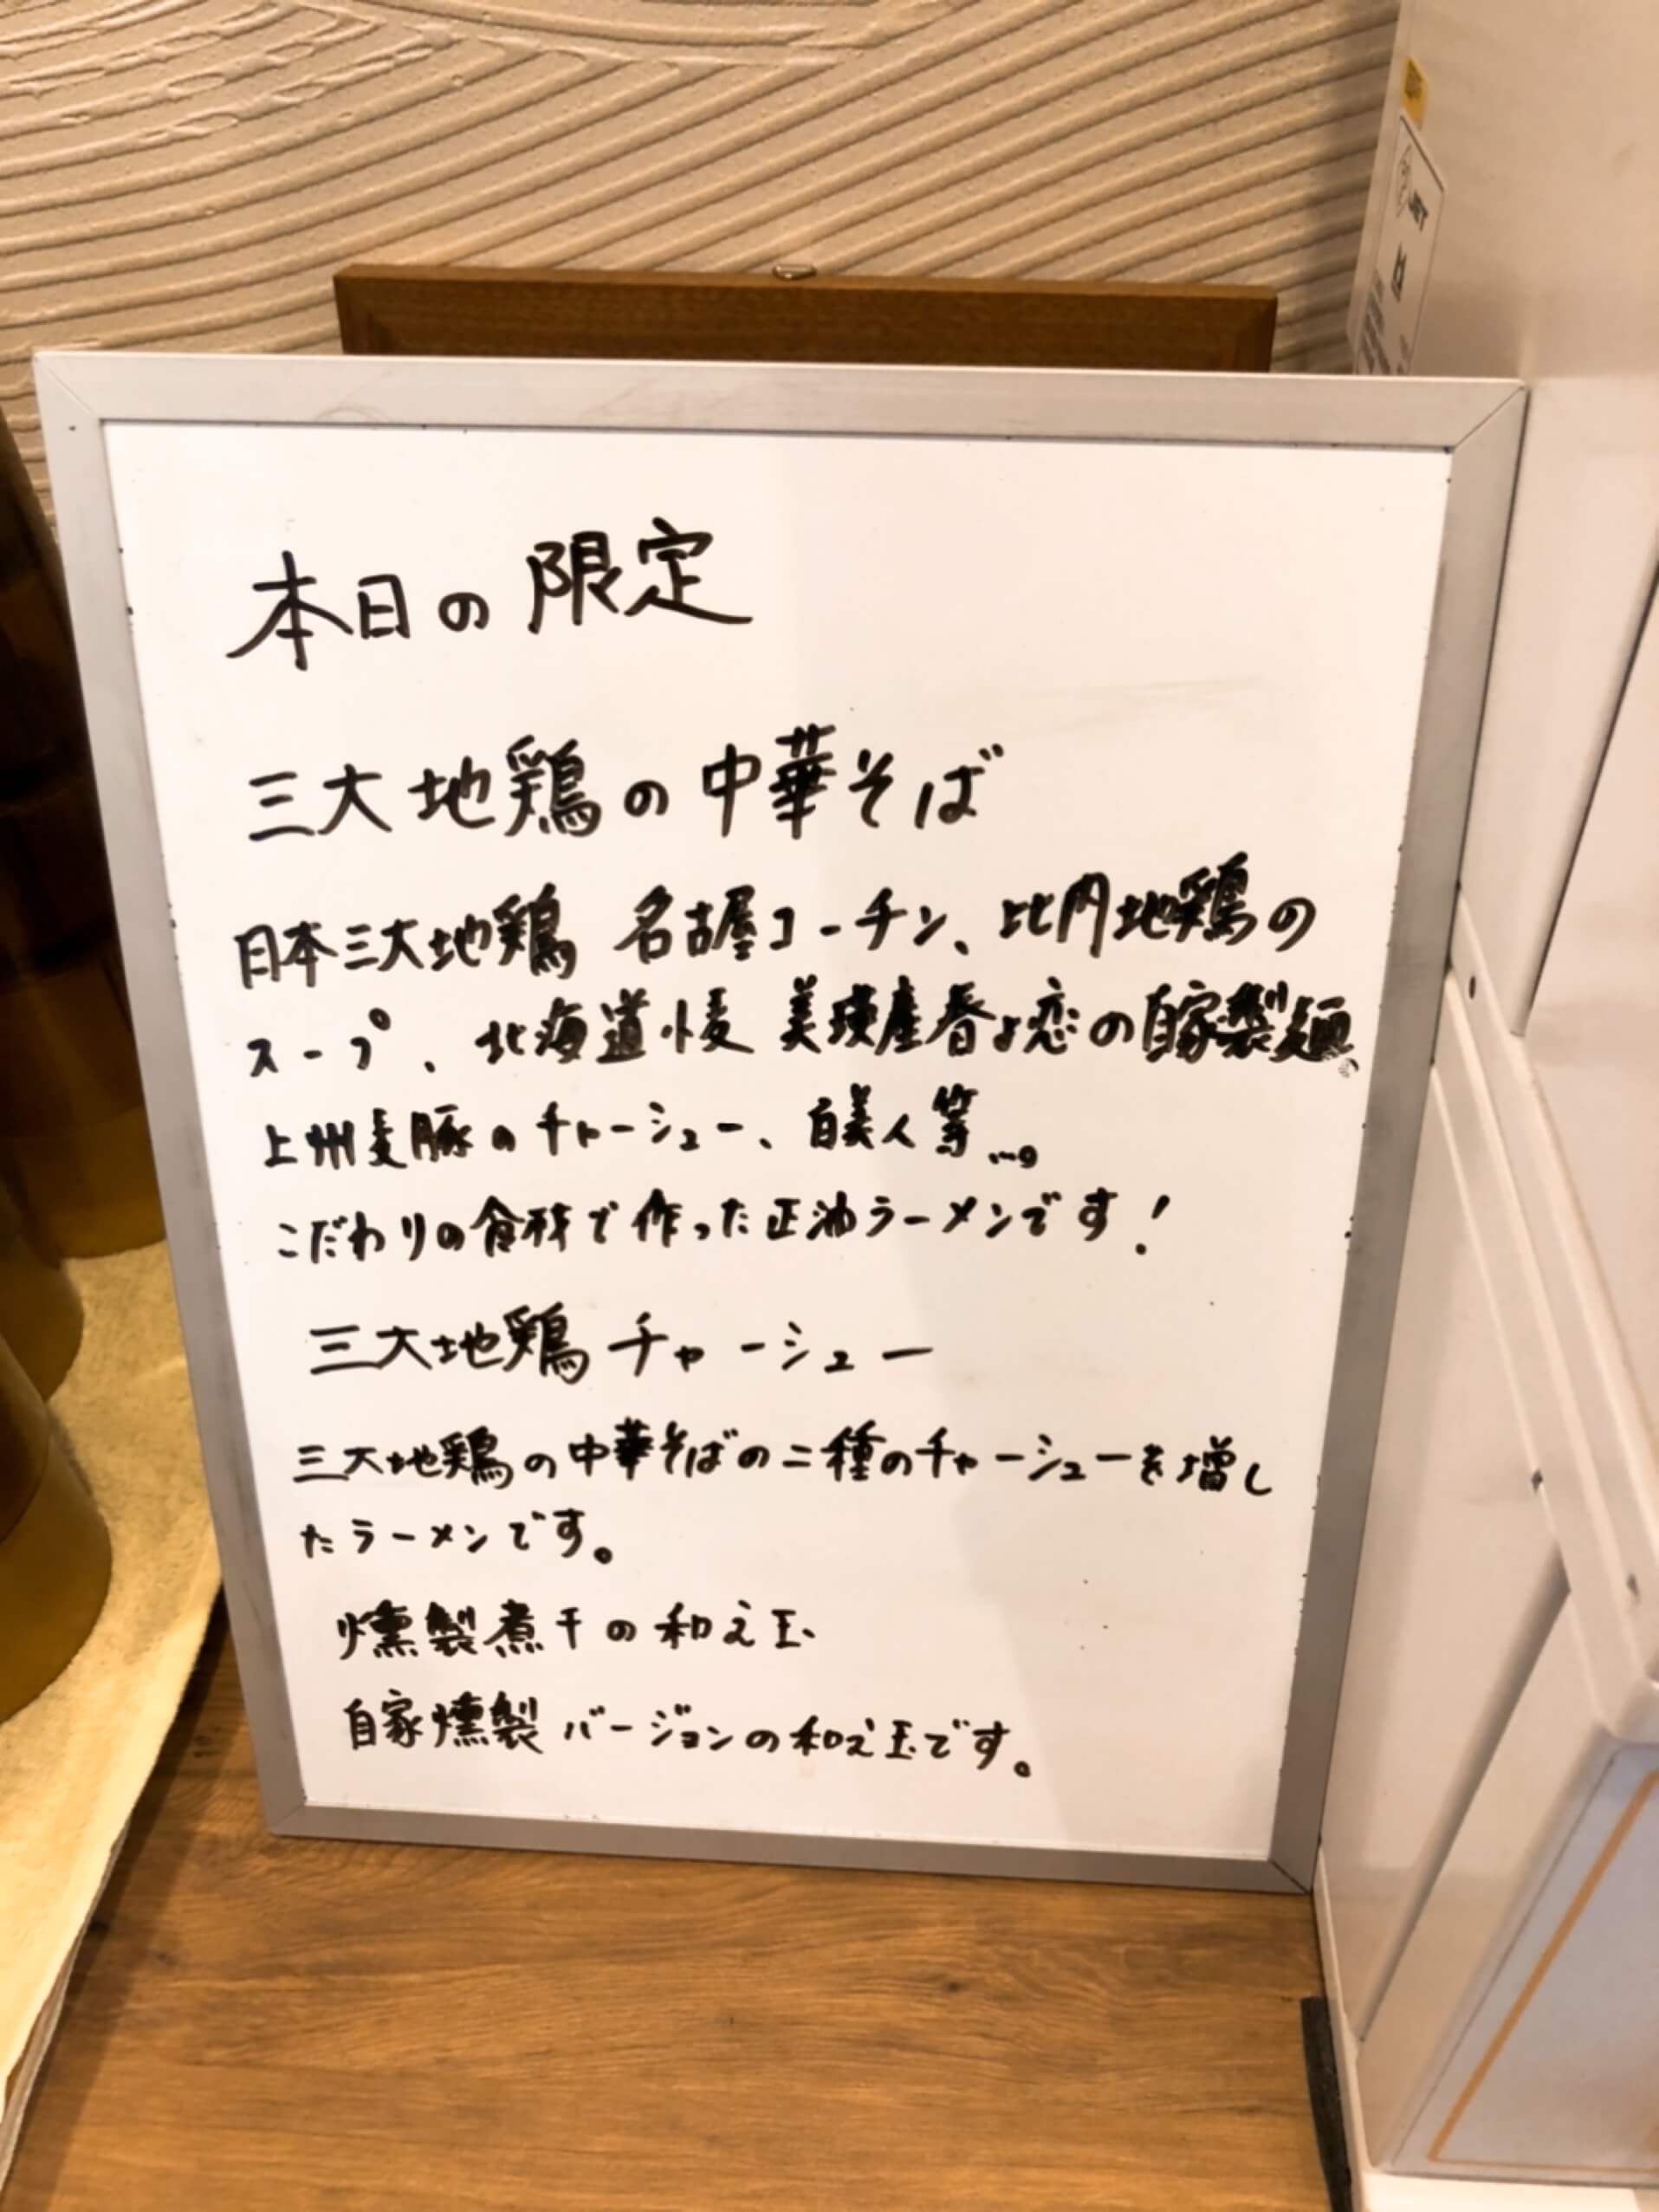 本日の限定
三大地鶏の中華そば
日本三大地鶏 名古屋コーチン、比内地鶏の
スープ、北海道小麦 美瑛産春よ恋の自家製麺、
上州麦豚のチャーシュー、白美人等...。
こだわりの食材で作った正油ラーメンです!
三大地鶏チャーシュー
三大地鶏の中華そばの二種のチャーシューを増し
たラーメンです。
燻製煮干の和え玉
自家燻製バージョンの和え玉です。
JET